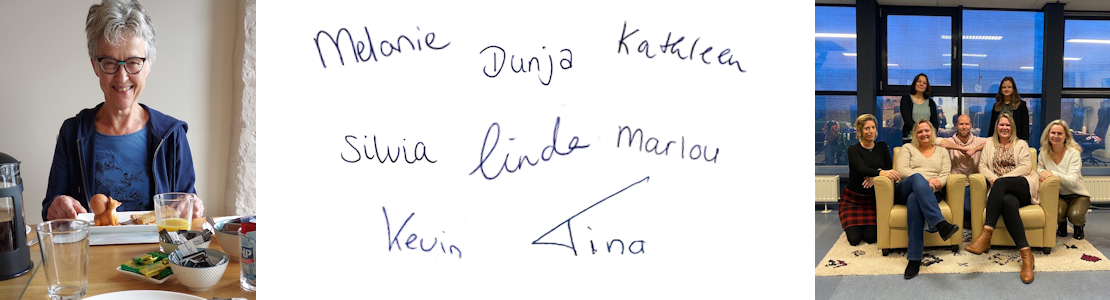 Melanie Dunja Kathleen
Silvia Linda Marlou
Kevin Tina